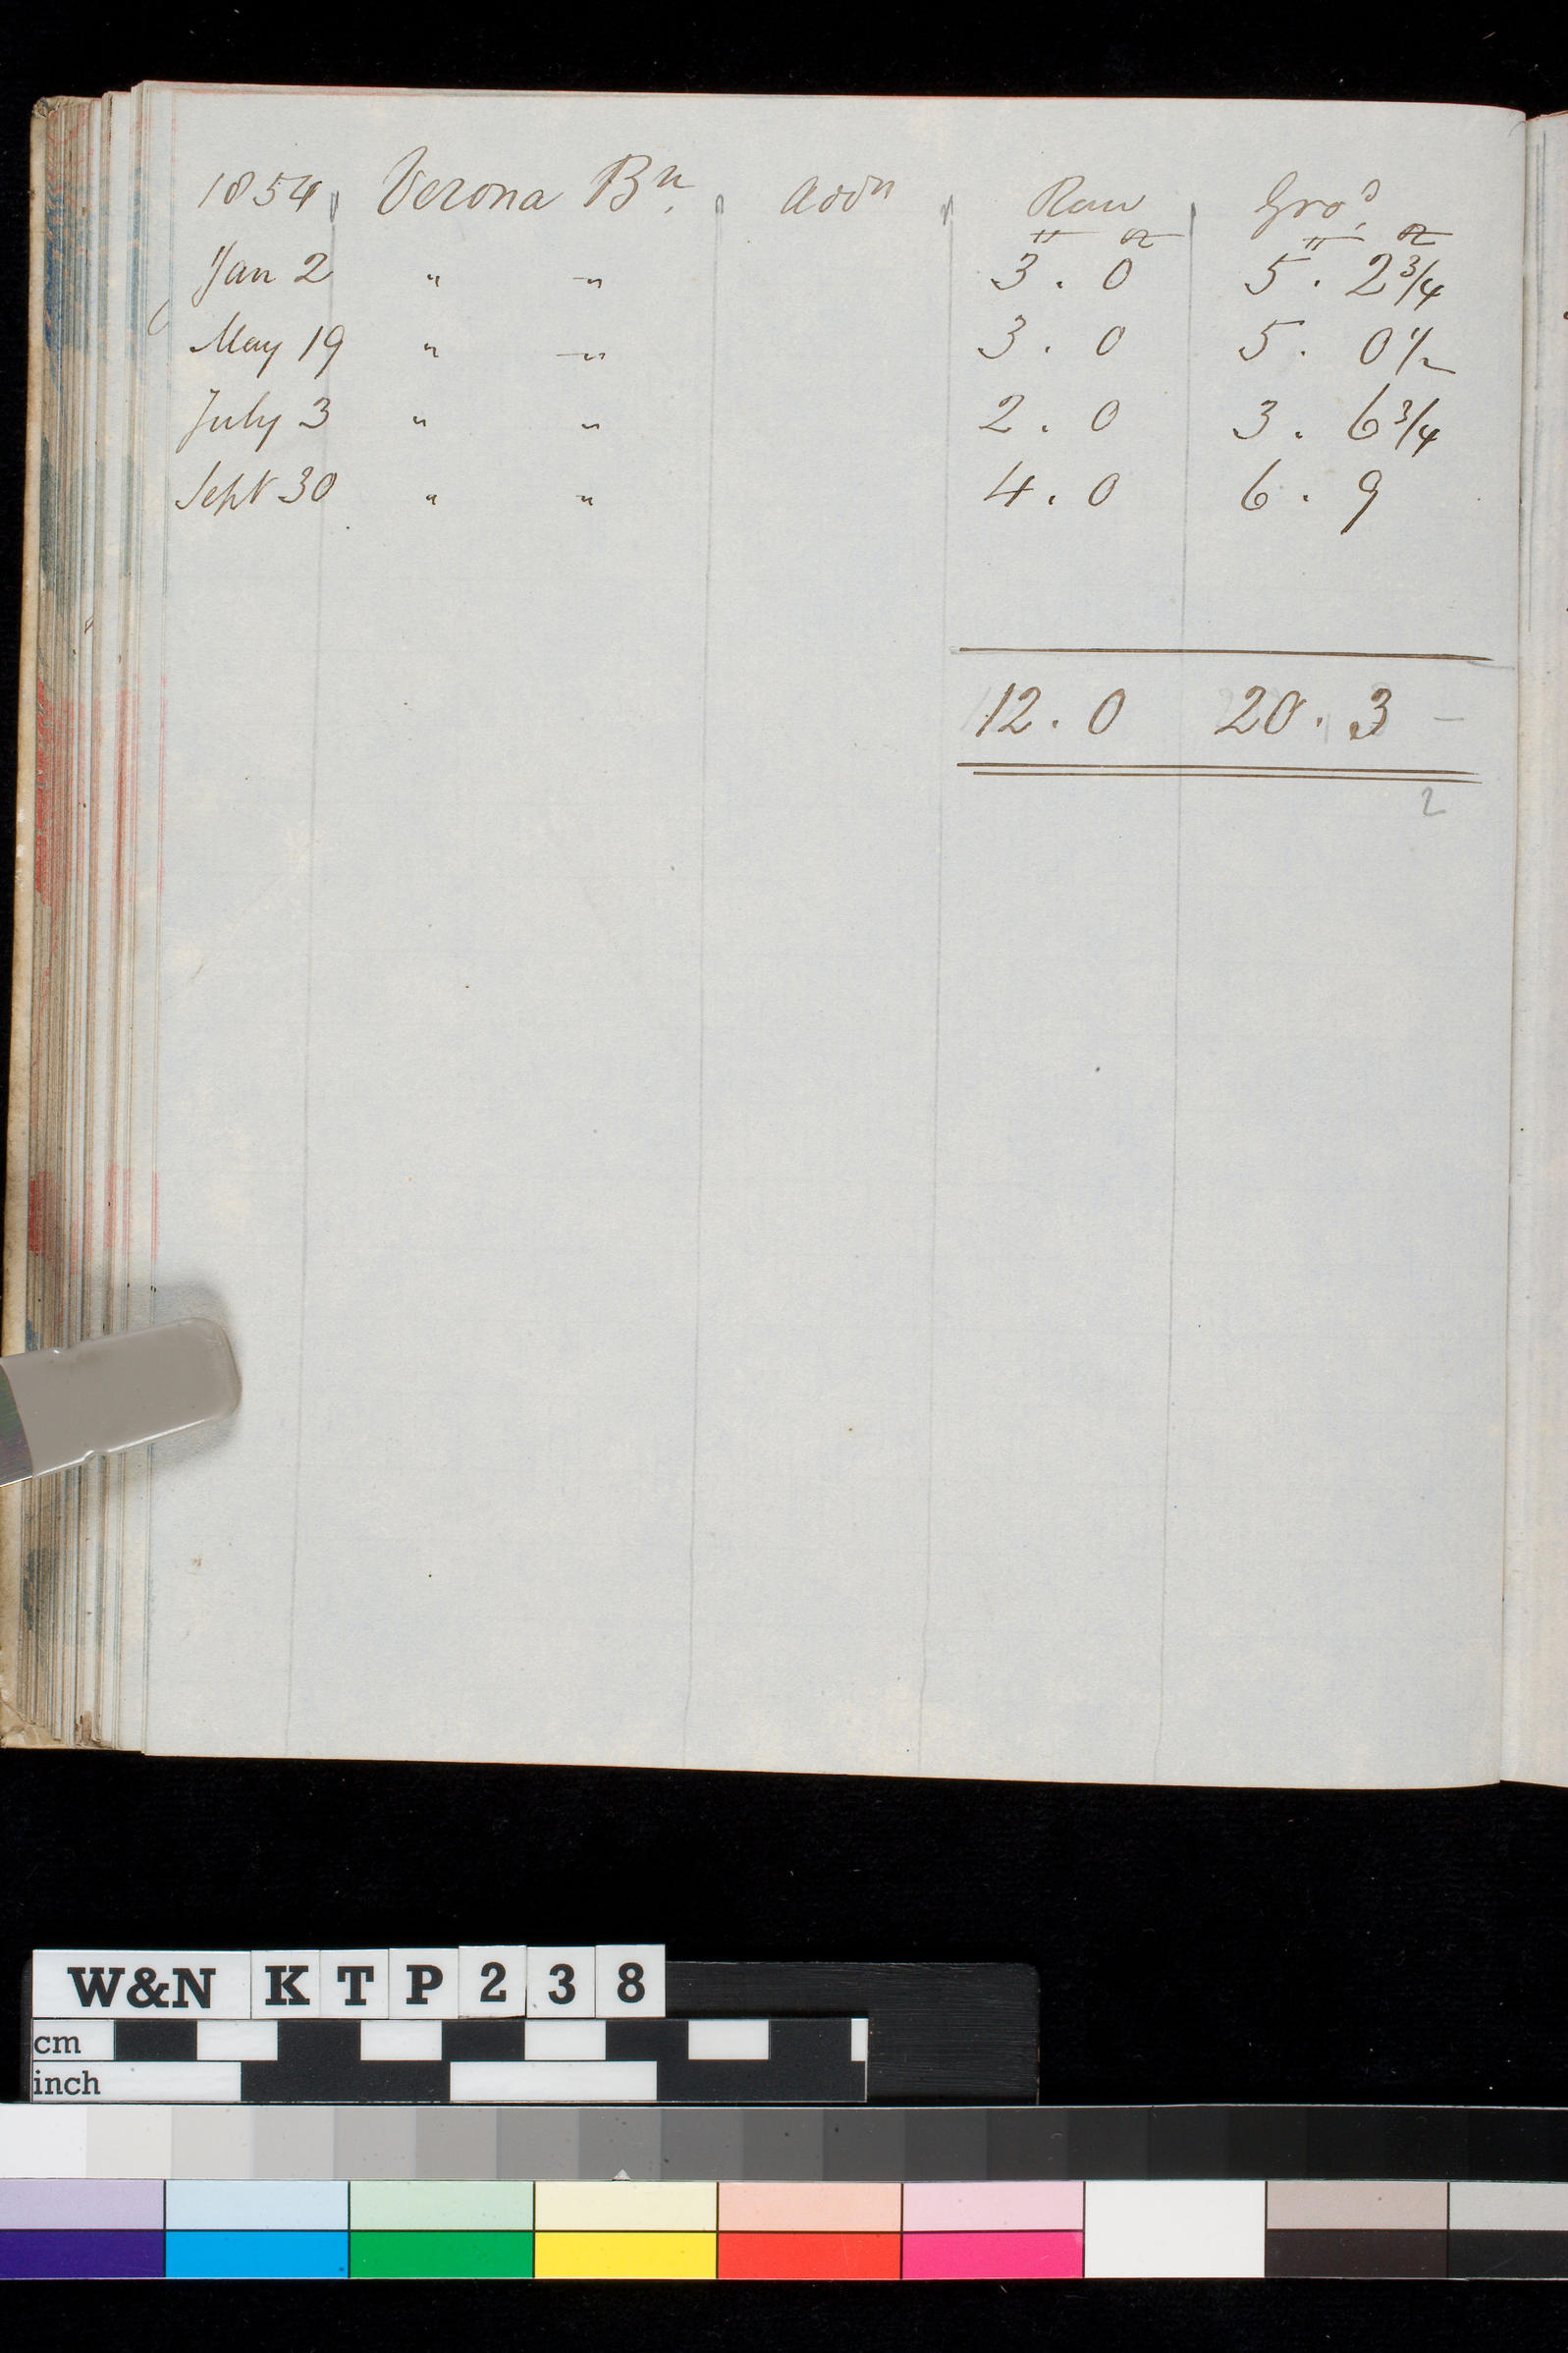 1854 Verona Bn. Addn Raw Gro.d
" oz " oz
Jan 2 " " 3 . 0 5 . 2 3/4
May 19 " " 3 . 0 5 . 0 1/2
July 3 " " 2 . 0 3 . 6 3/4
Sept 30 " " 4 . 0 6 . 9
12 . 0 20 . 3 -
2
W&N KTP238
cm
inch